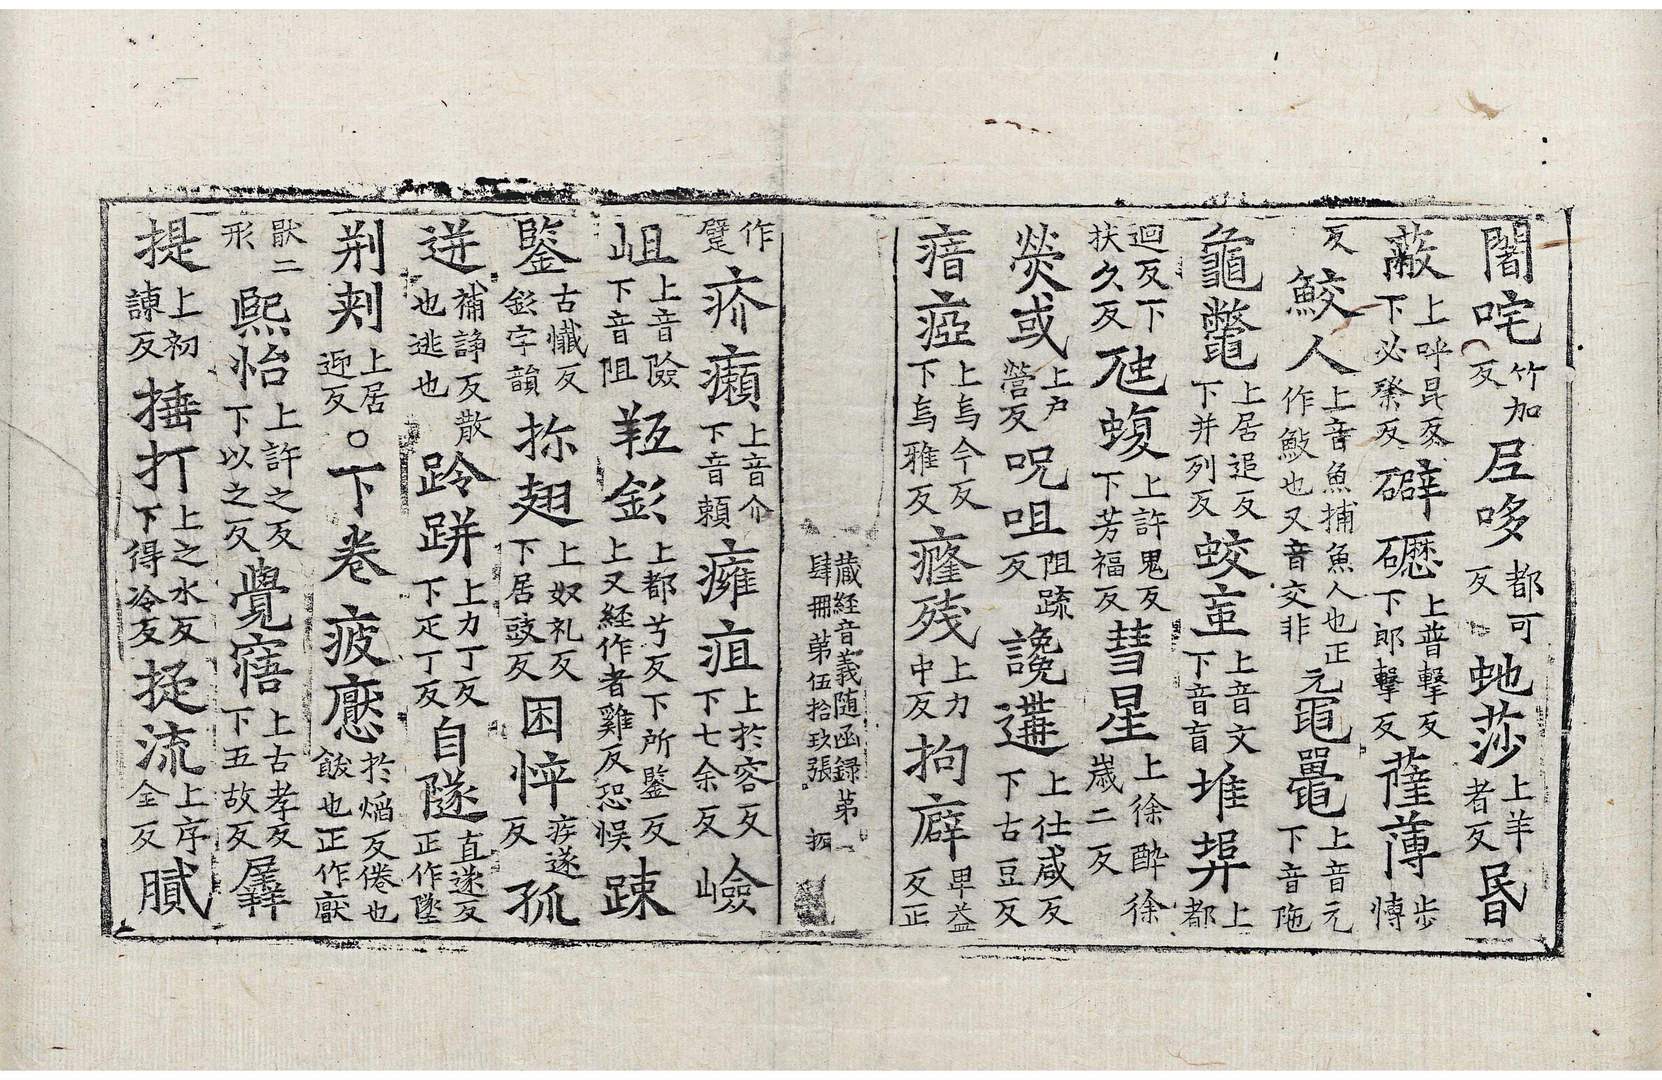 闍咤竹加反𡰱哆都可反虵莎上羊者反昬
蔽上呼昆反下必祭反礔礰上普擊反下郎擊反薩薄步愽
反鮫人上音魚捕魚人也正作䱷也又音交非元黿鼉上音元下音陁
龜鼈上居追反下并列反蛟䖟上音文下音盲堆埠上都
迴反下扶久反虺蝮上許鬼反下芳福反彗星上徐醉徐歲二反
熒或上户營反呪咀阻䟽反讒遘上仕咸反下古豆反
瘖瘂上烏今反下烏雅反癃殘上力中反拘癖畀益反正
藏経音義随函録苐一
肆冊苐伍拾玖張
作躄疥癩上音介下音頼癰疽上於容反下七余反嶮
岨上音險下音阻羝䤼上都兮反下所鑒反上又経作者雞反恐悮踈
鑒古懺反䤼字韻捺翅上奴礼反下居豉反困悴疾遂反孤
迸補諍反散也逃也跉跰上力丁反下疋丁反自隧直遂反正作墜
荆㓨上居迎反○下卷疲懕於焔反倦也飽也正作厭
猒二形熈怡上許之反下以之反覺寤上古孝反下五故反羼
提上初諫反捶打上之水反下得冷反挻流上序全反膩